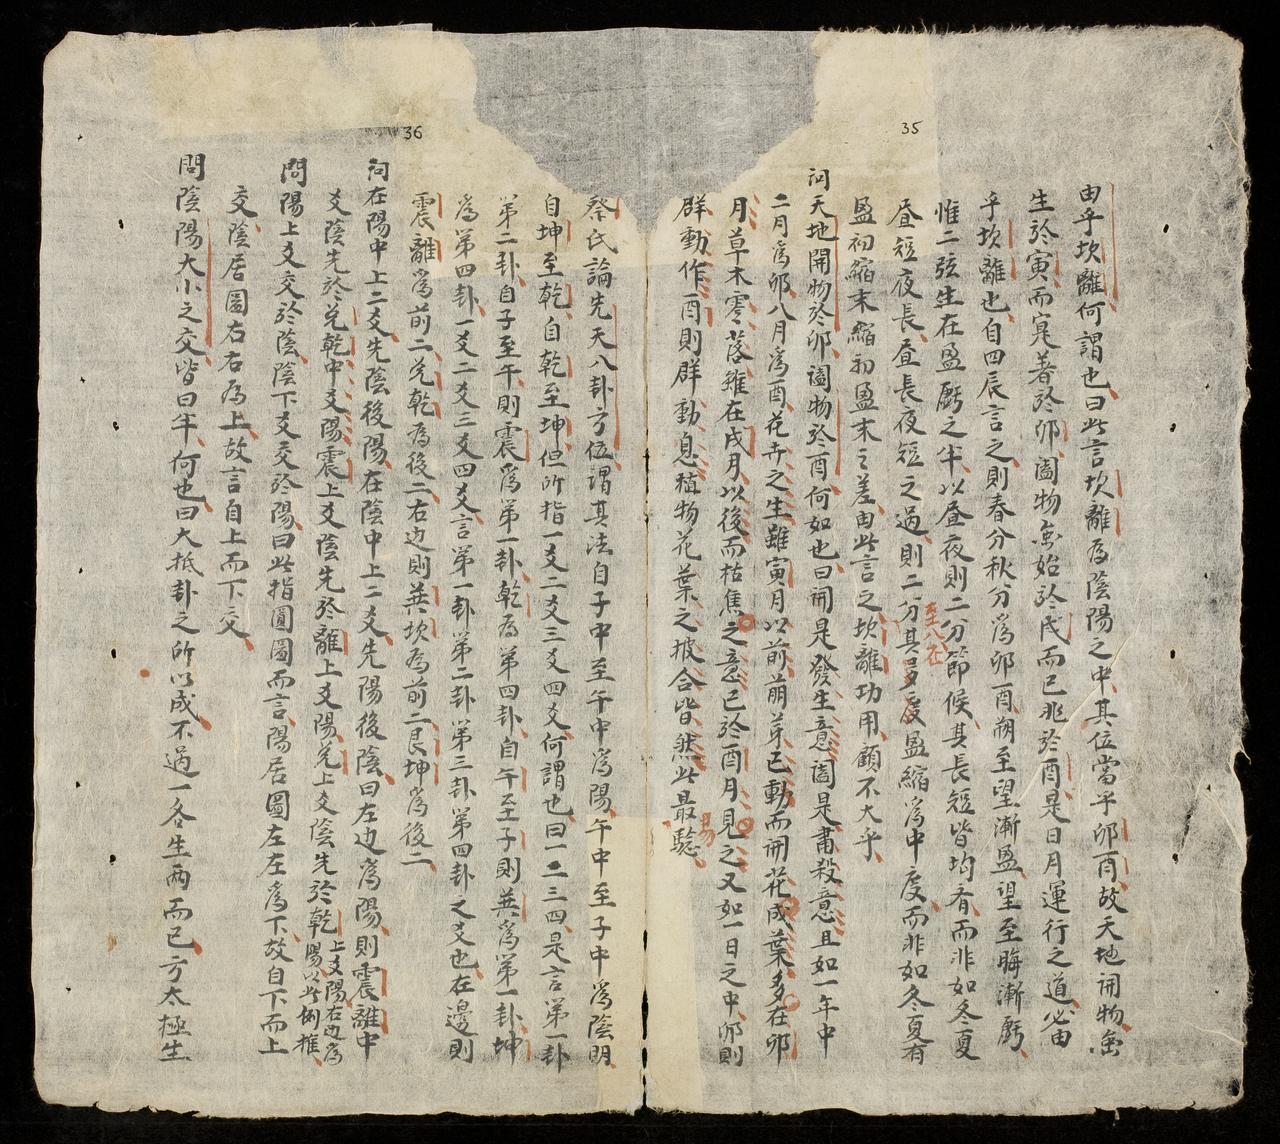 35
由乎坎離何謂也曰此言坎離為陰陽之中其位當乎卯酉故天地開物虽
生於寅而寔著於卯闔物虽始於戌而已兆於酉是日月運行之道必由
乎坎離也自四辰言之則春分秋分為卯酉朔至望漸盈望至晦漸虧
惟二弦生在盈虧之半以昼夜則二分節候其長短皆均斉而非如冬夏
昼短夜長昼長夜短之過則二分其多度盈縮為中度而非如冬夏有
至八在
盈初縮末縮初盈末之差由此言之坎離功用顧不大乎
问天地開物於卯闔物於酉何如也曰開是發生意闔是肅殺意且如一年中
二月為卯八月為酉花卉之生雖寅月以前萌芽已動而開花成葉多在卯
月草木零落雖在戌月以後而枯焦之意已於酉月見之又如一日之中卯則
群動作酉則群動息植物花葉之披合皆然此最驗
易
36
蔡氏論先天八卦方位謂其法自子中至午中為陽午中至子中為陰明
自坤至乾自乾至坤但所指一爻二爻三爻四爻何謂也曰一二三四是言第一卦
第二卦自子至午則震為第一卦乾為第四卦自午至子則巽為第一卦坤
為第四卦一爻二爻三爻四爻言第一卦第二卦第三卦第四卦之爻也在邊則
震離為前二兌乾為後二右边則巽坎為前二艮坤為後二
问在陽中上二爻先陰後陽在陰中上二爻先陽後陰曰左边為陽則震離中
爻陰先於兌乾中爻陽震上爻陰先於離上爻陽兌上爻陰先於乾上爻陽右边為陽以此例推
問陽上爻交於陰陰下爻交於陽曰此指圓圖而言陽居圖左左為下故自下而上
交陰居圖右右為上故言自上而下交
問陰陽大小之交皆曰半何也曰大抵卦之所以成不過一各生兩而已方太極生